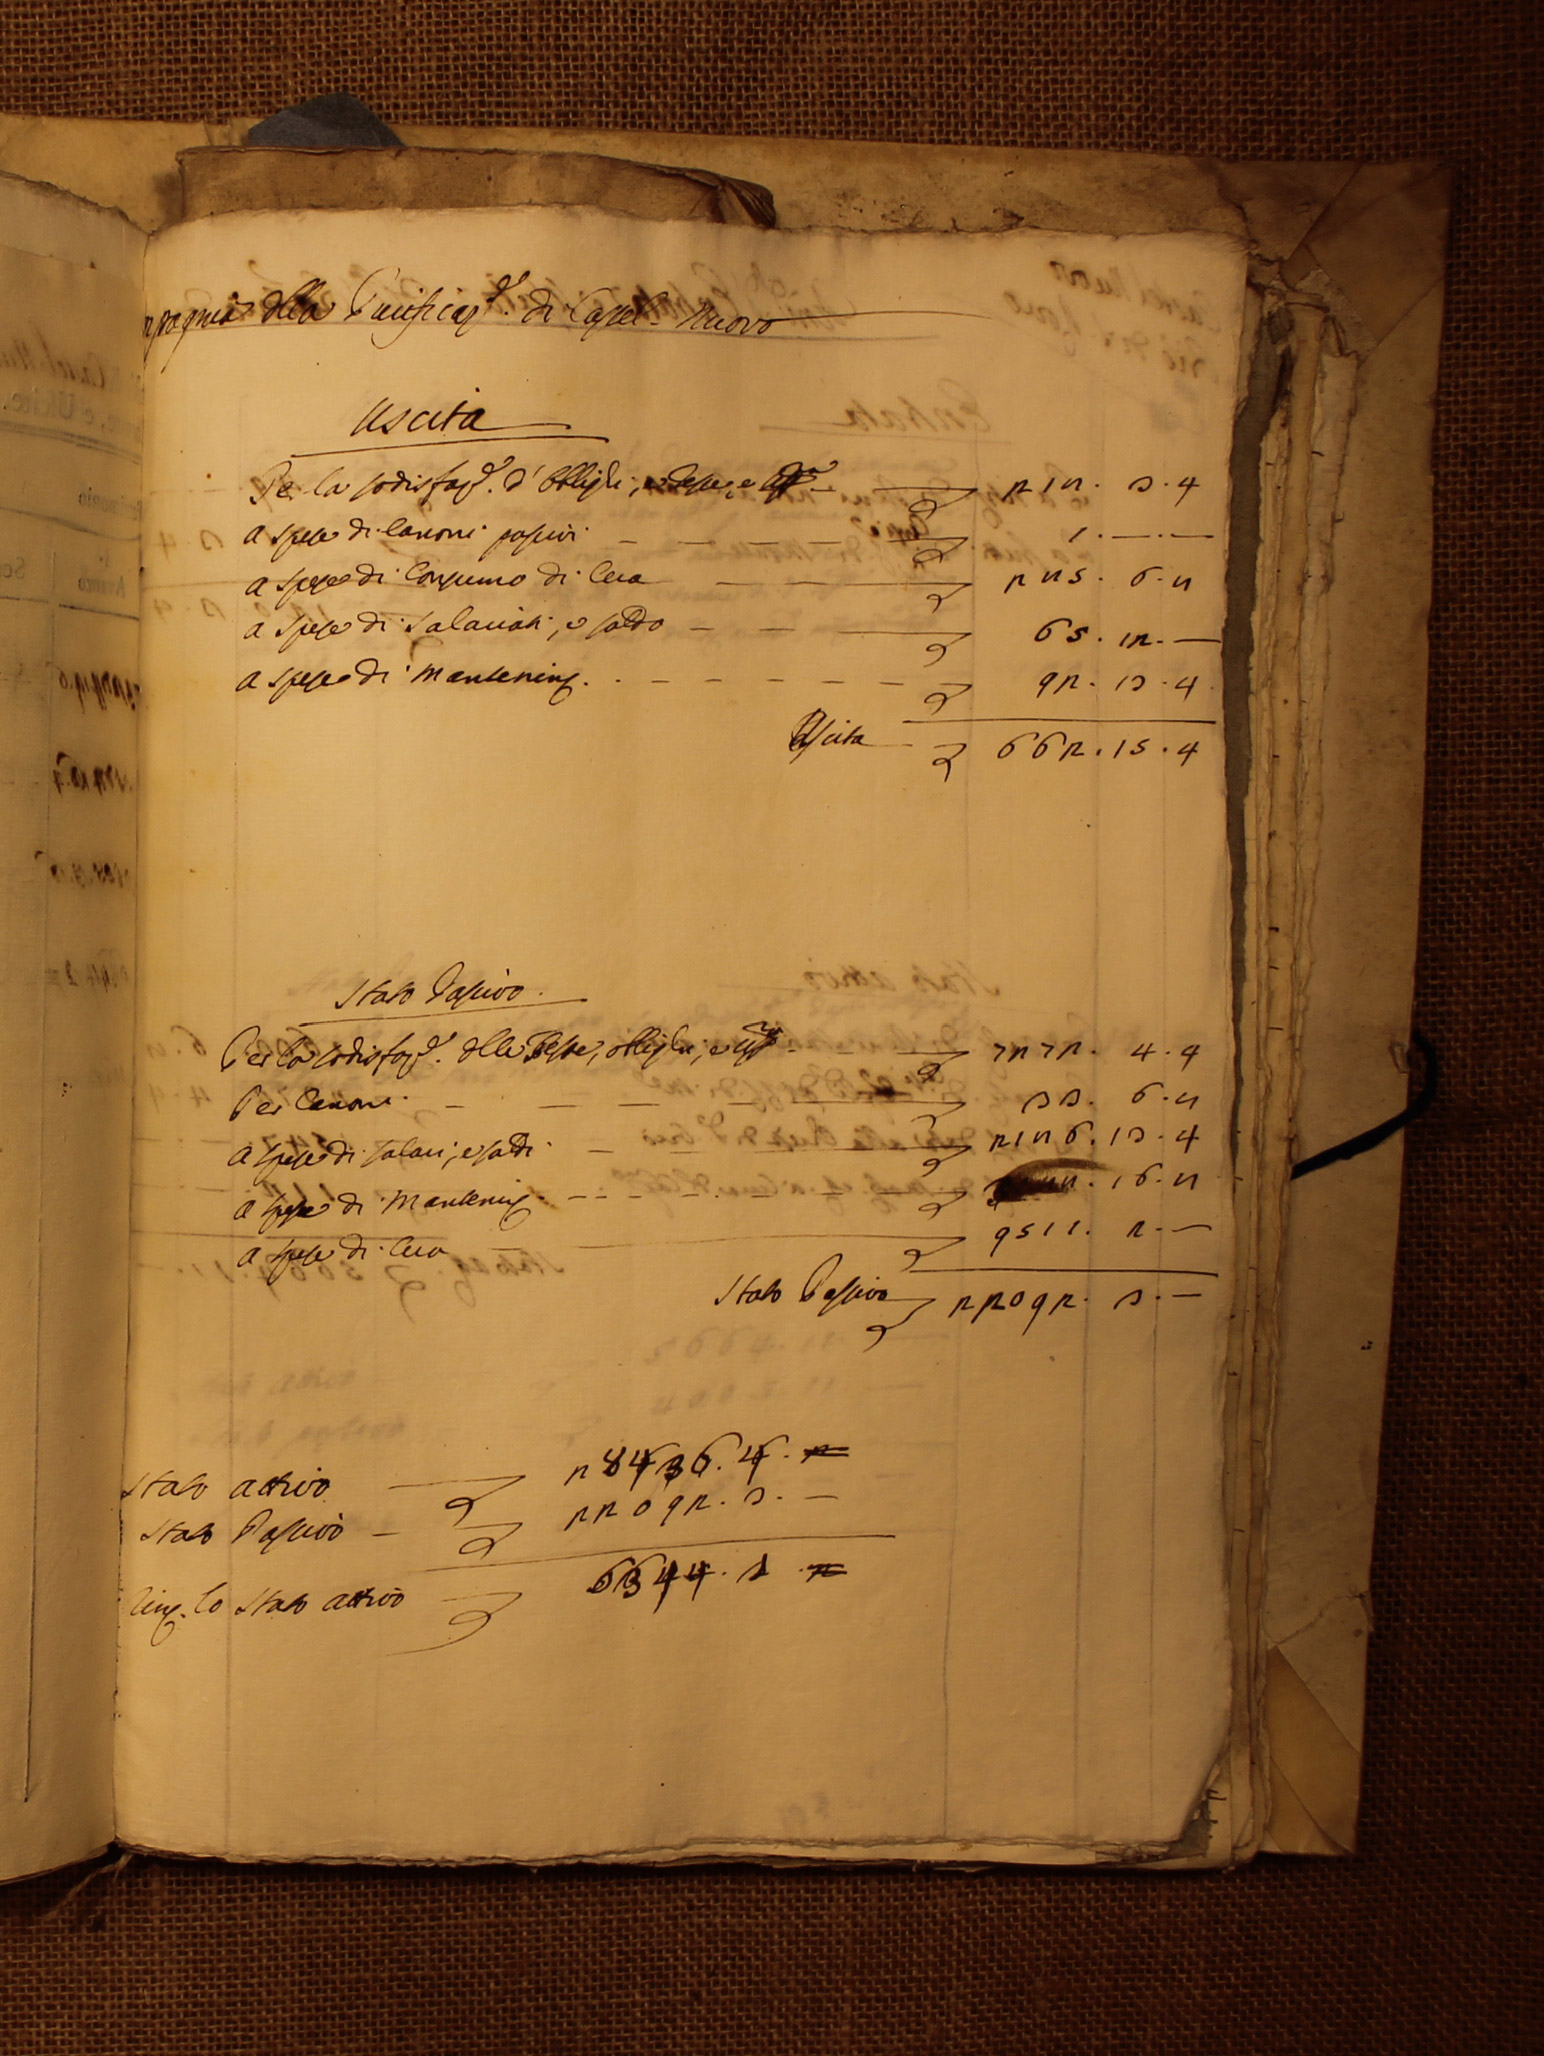 mpagnia della Purificaz.e di Castel Nuovo
Uscita
Per la sodisfaz.e d'Obblighi, e Feste, e 218. 3. 4
a spese di Canoni passivi 1. — —
a spese di Consumo di Cera 285. 6. 8
a spese di Salariati, e saldo 65. 12. —
a spese di Mantenim. 92. 13. 4
Uscita 662. 15. 4
Stato Passivo
Per la sodisfaz.e delle Feste, obblighi, e 7272. 4. 4
Per Canoni 33. 6. 8
a spese di salari, e saldi 2186. 13. 4
a spese di Mantenim. 3088. 16. 8
a spese di Cera 9511. 2. —
Stato Passivo 22092. 3. —
Stato attivo 28436. 4. 2
Stato Passivo 22092. 3. —
Rim. lo Stato attivo 6344. 1. 2